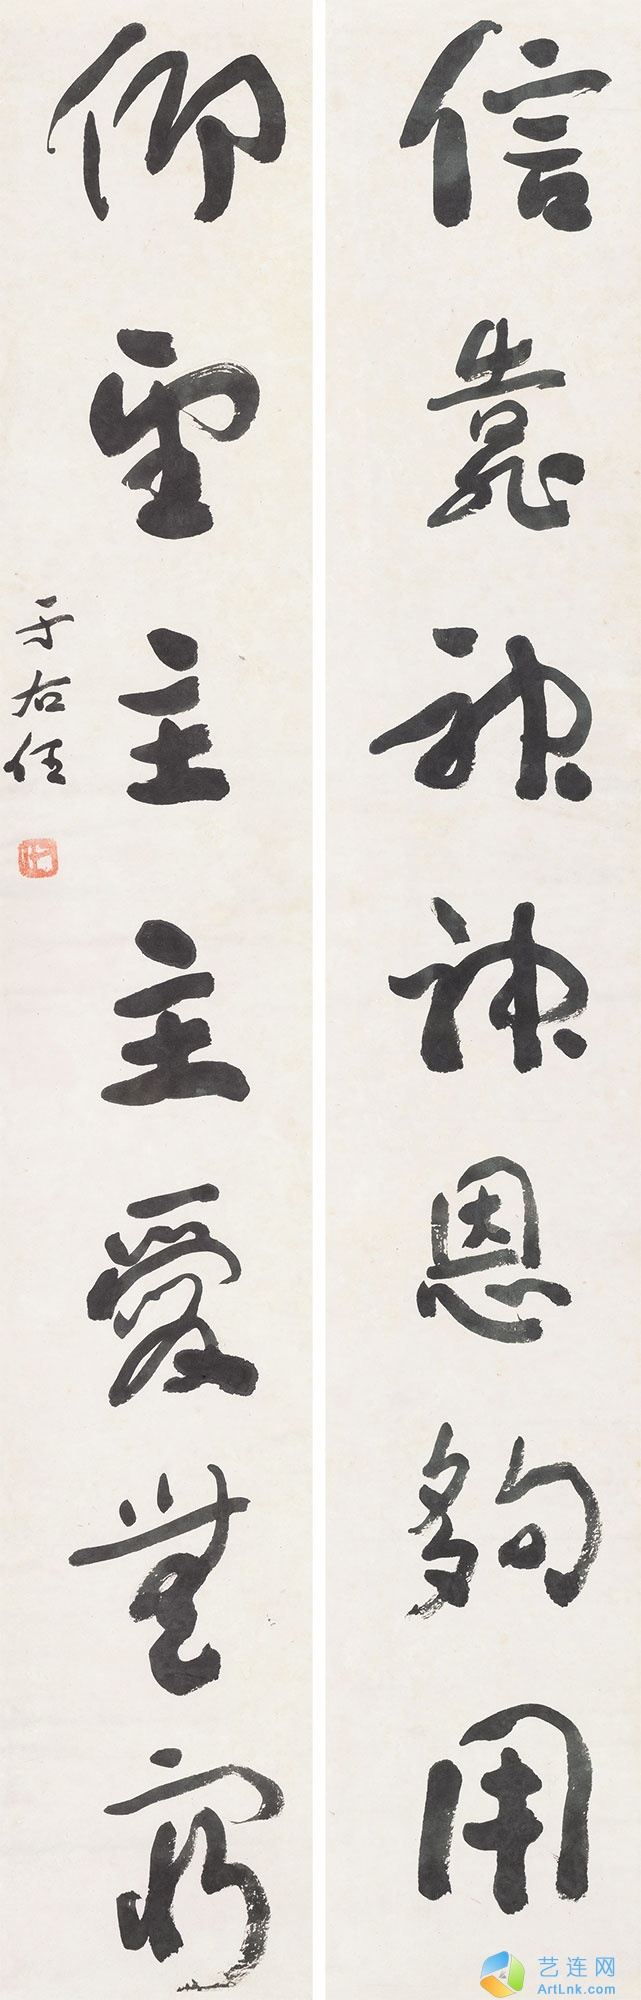 信靠神神恩夠用
仰望主主愛無窮
于右任
艺连网
ArtLnk.com